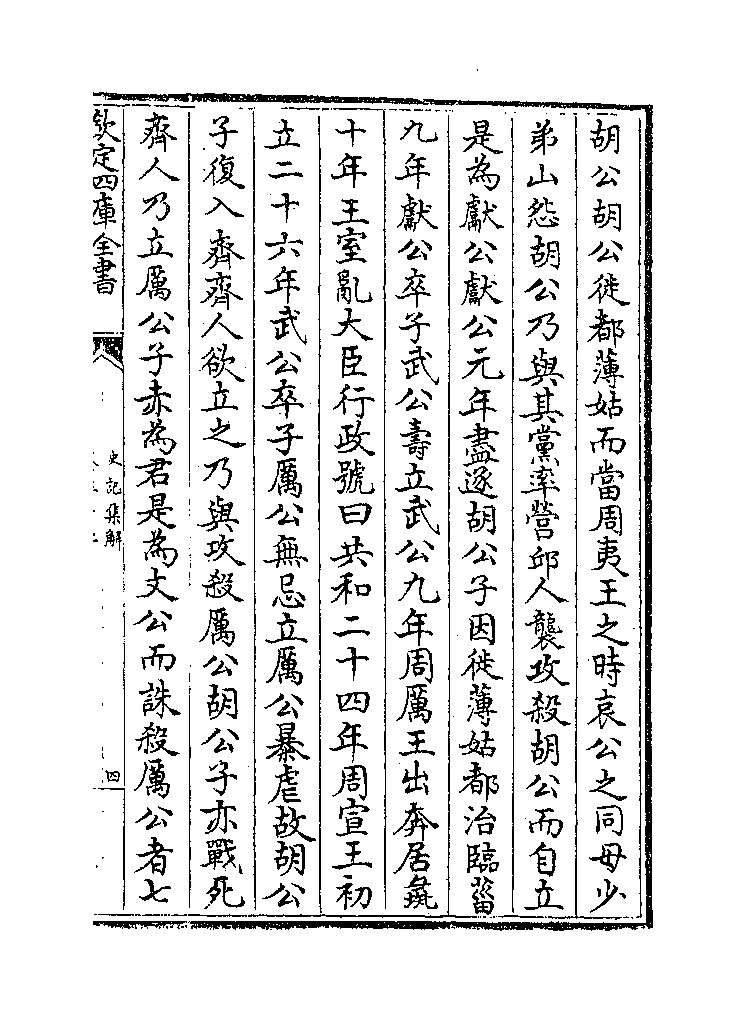 胡公胡公徙都薄姑而當周夷王之時哀公之同母少
弟山怨胡公乃與其黨率營邱人襲攻殺胡公而自立
是為獻公獻公元年盡逐胡公子因徙薄姑都治臨菑
九年獻公卒子武公壽立武公九年周厲王出奔居彘
十年王室亂大臣行政號曰共和二十四年周宣王初
立二十六年武公卒子厲公無忌立厲公暴虐故胡公
子復入齊齊人欲立之乃與攻殺厲公胡公子亦戰死
齊人乃立厲公子赤為君是為文公而誅殺厲公者七
欽定四庫全書
史記集解
四